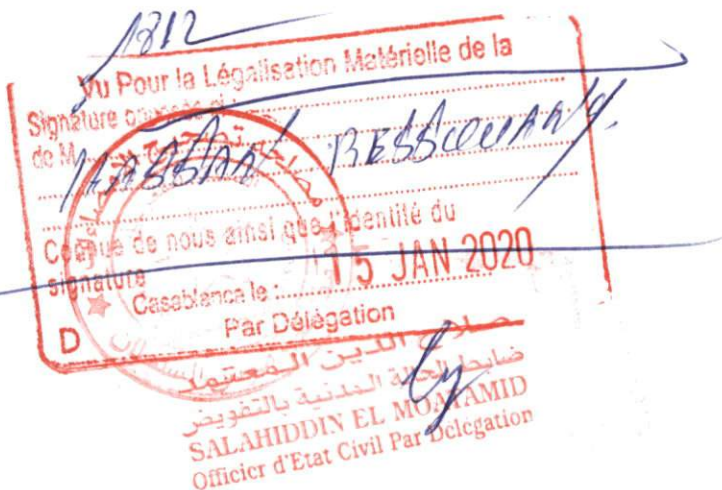 1812
Vu Pour la Légalisation Matérielle de la
Signature
de M. HASSAN
Connue de nous ainsi que l'identité du
signature
15 JAN 2020
Casablanca le :
Par Délégation
D
صلاح الدين المعتمد
ضابط الحالة المدنية بالتفويض
SALAHIDDIN EL MOATAMID
Officier d'Etat Civil Par Delegation